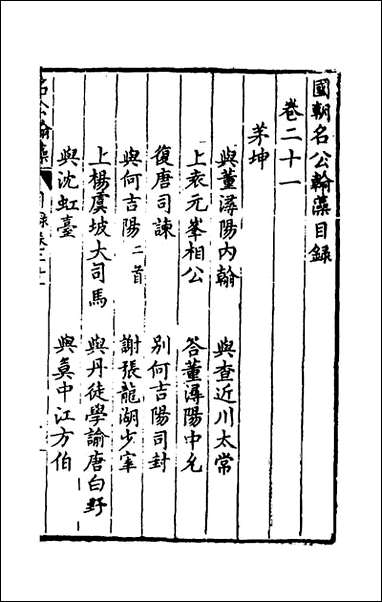 國朝名公翰藻目録
卷二十一
茅坤
與董潯陽內翰
與查近川太常
上袁元峯相公
答董潯陽中允
復唐司諫
別何吉陽司封
與何吉陽二首
謝張龍湖少宰
上楊虞坡大司馬
與丹徒學諭唐白野
與沈虹臺
與莫中江方伯
名公翰藻
目録卷二十一